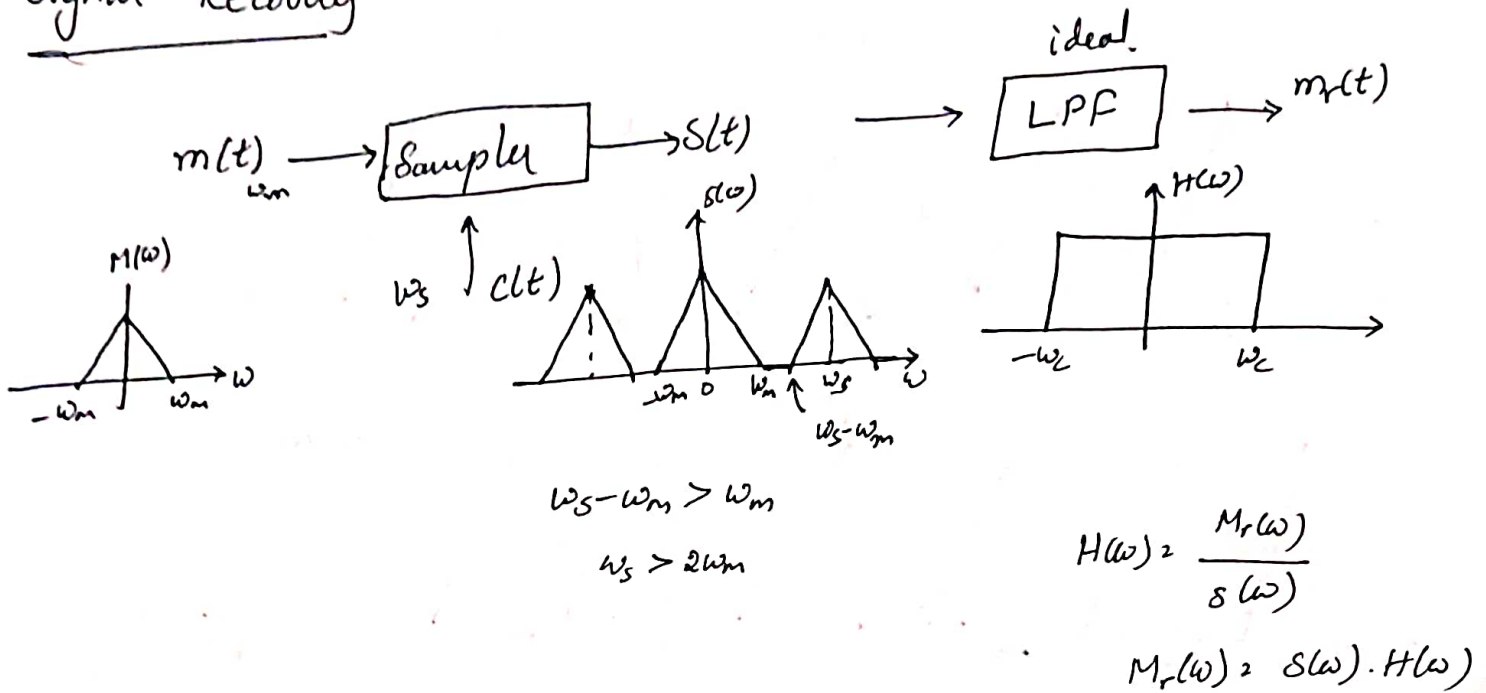 Signal Recovery
ideal.
m(t) ωm
Sampler
S(t)
LPF
mr(t)
M(ω)
ωs
C(t)
S(ω)
H(ω)
-ωm
ωm
ω
-ωm 0 ωm ωs ω
ωs-ωm
-ωc
ωc
ωs-ωm > ωm
ωs > 2ωm
H(ω) = Mr(ω)
S(ω)
Mr(ω) = S(ω).H(ω)